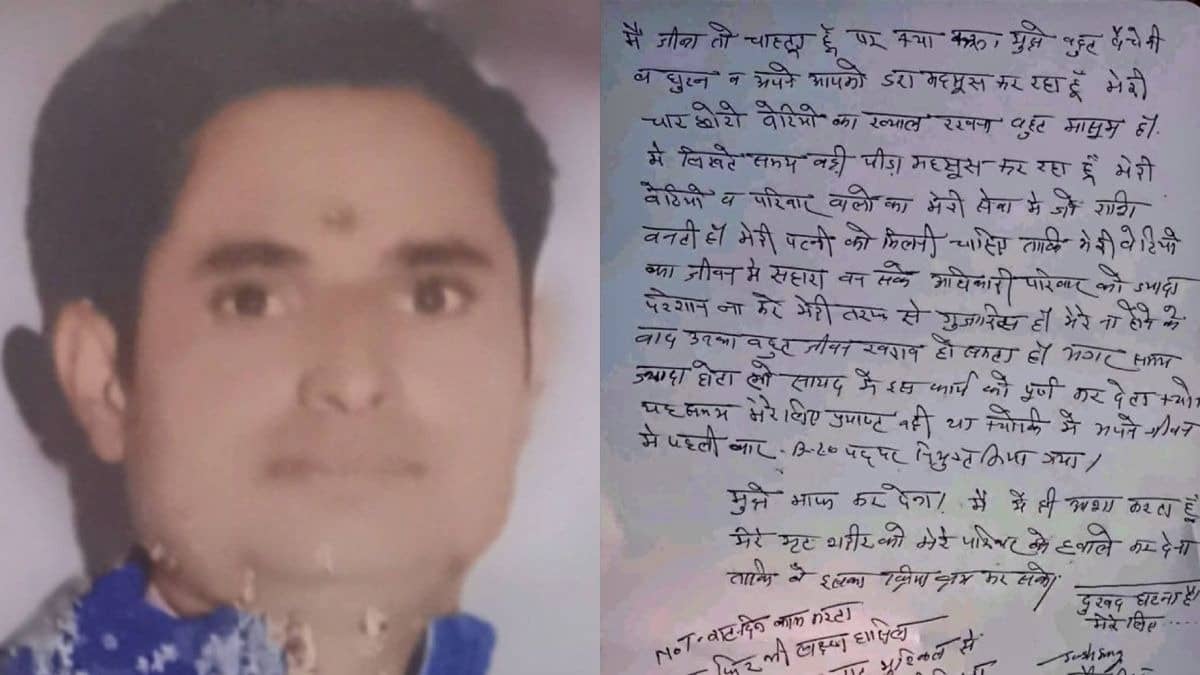 मै जीना तो चाहता हूँ पर क्या करू, मुझे बहुत बैचेनी
व घुटन व अपने आपको डरा महसूस कर रहा हूँ मेरी
चार छोटी बेटियो का ख्याल रखना बहुट मासूम हाँ.
मै लिखते समय बडी पीडा महसूस कर रहा हूँ मेरी
बेटियो व परिवार वालो का मेरी सेवा मे जो राशि
बनती हाँ मेरी पत्नी को मिलनी चाहिए ताकि मेरी बेटियो
का जीवन मे सहारा बन सके अधिकारी परिवार को ज्यादा
परेशान ना करे मेरी तरफ से गुजारिस हाँ मेरे ना होने के
बाद उनका बहुट जीवन खराब हो सकता हाँ अगर समय
ज्यादा होता तो सायद मै इस कार्य को पूर्ण कर देता
यह समय मेरे लिए नही था क्योकि मै अपने जीवन
मे पहली बार B-Lo पद पर नियुक्त किया गया।
मुझे माफ कर देना। मै ये ही आशा करता हूँ
मेरे मृत शरीर को मेरे परिवार के हवाले कर देना
ताकि वे इसका क्रिया कर सके।
दुखद घटना है।
मेरे लिए ....
NOT- रात-दिन काम करता
फिर भी लक्ष्य हासिल
मुश्किल से